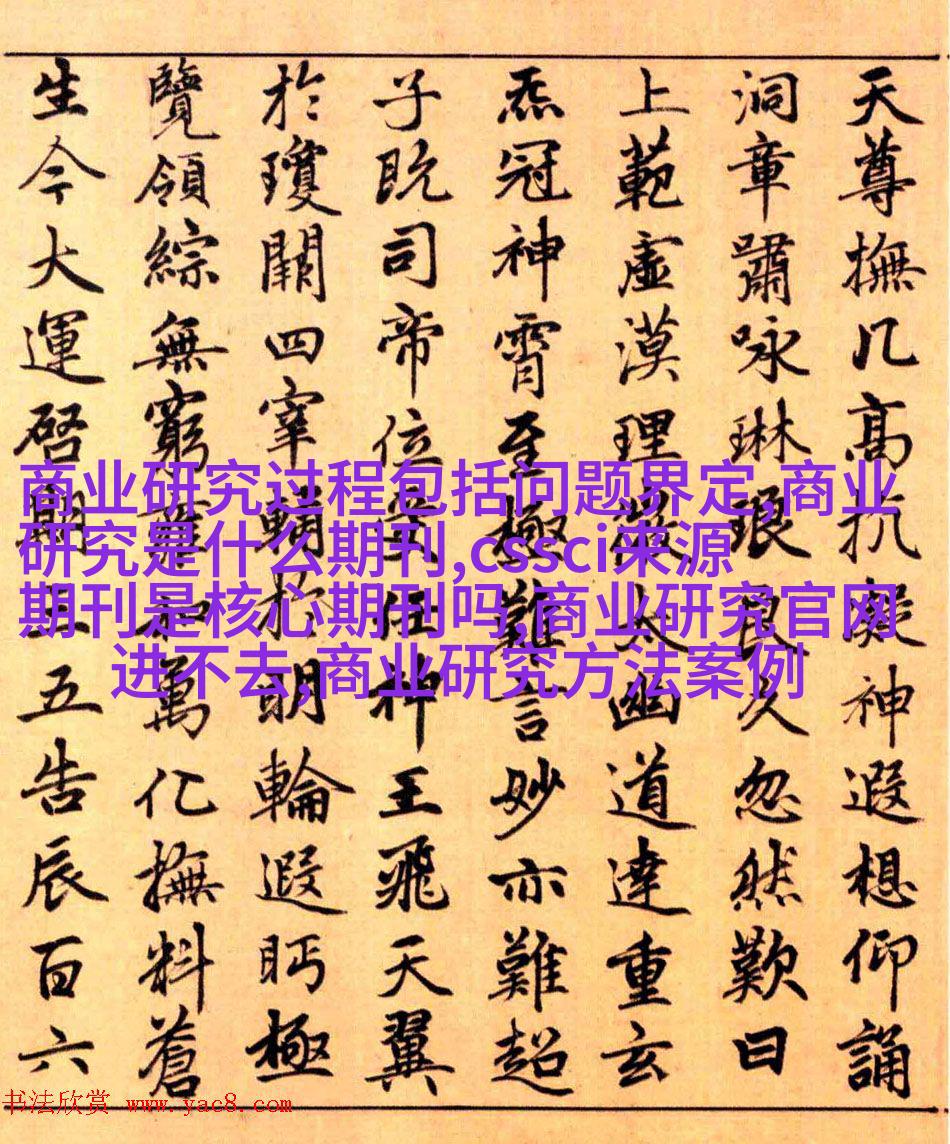 天尊撫几高抗凝神遐想仰誦
洞章嘯咏琳琅良久忽然歎曰
上範虛漠理太幽道達重玄
炁冠神霄至極難言妙亦難超
子既司帝位任神王飛天翼
於瓊闕四宰輔於明輪遐眄極
覽領綜無窮和萬化撫料蒼
生今大運啓期三五告辰百六
商业研究过程包括问题界定,商业
研究是什么期刊,cssci来源
期刊是核心期刊吗,商业研究官网
进不去,商业研究方法案例
书法欣赏 www.yac8.com